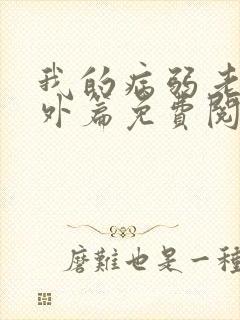 我的病弱老
外篇免費閱
磨難也是一種